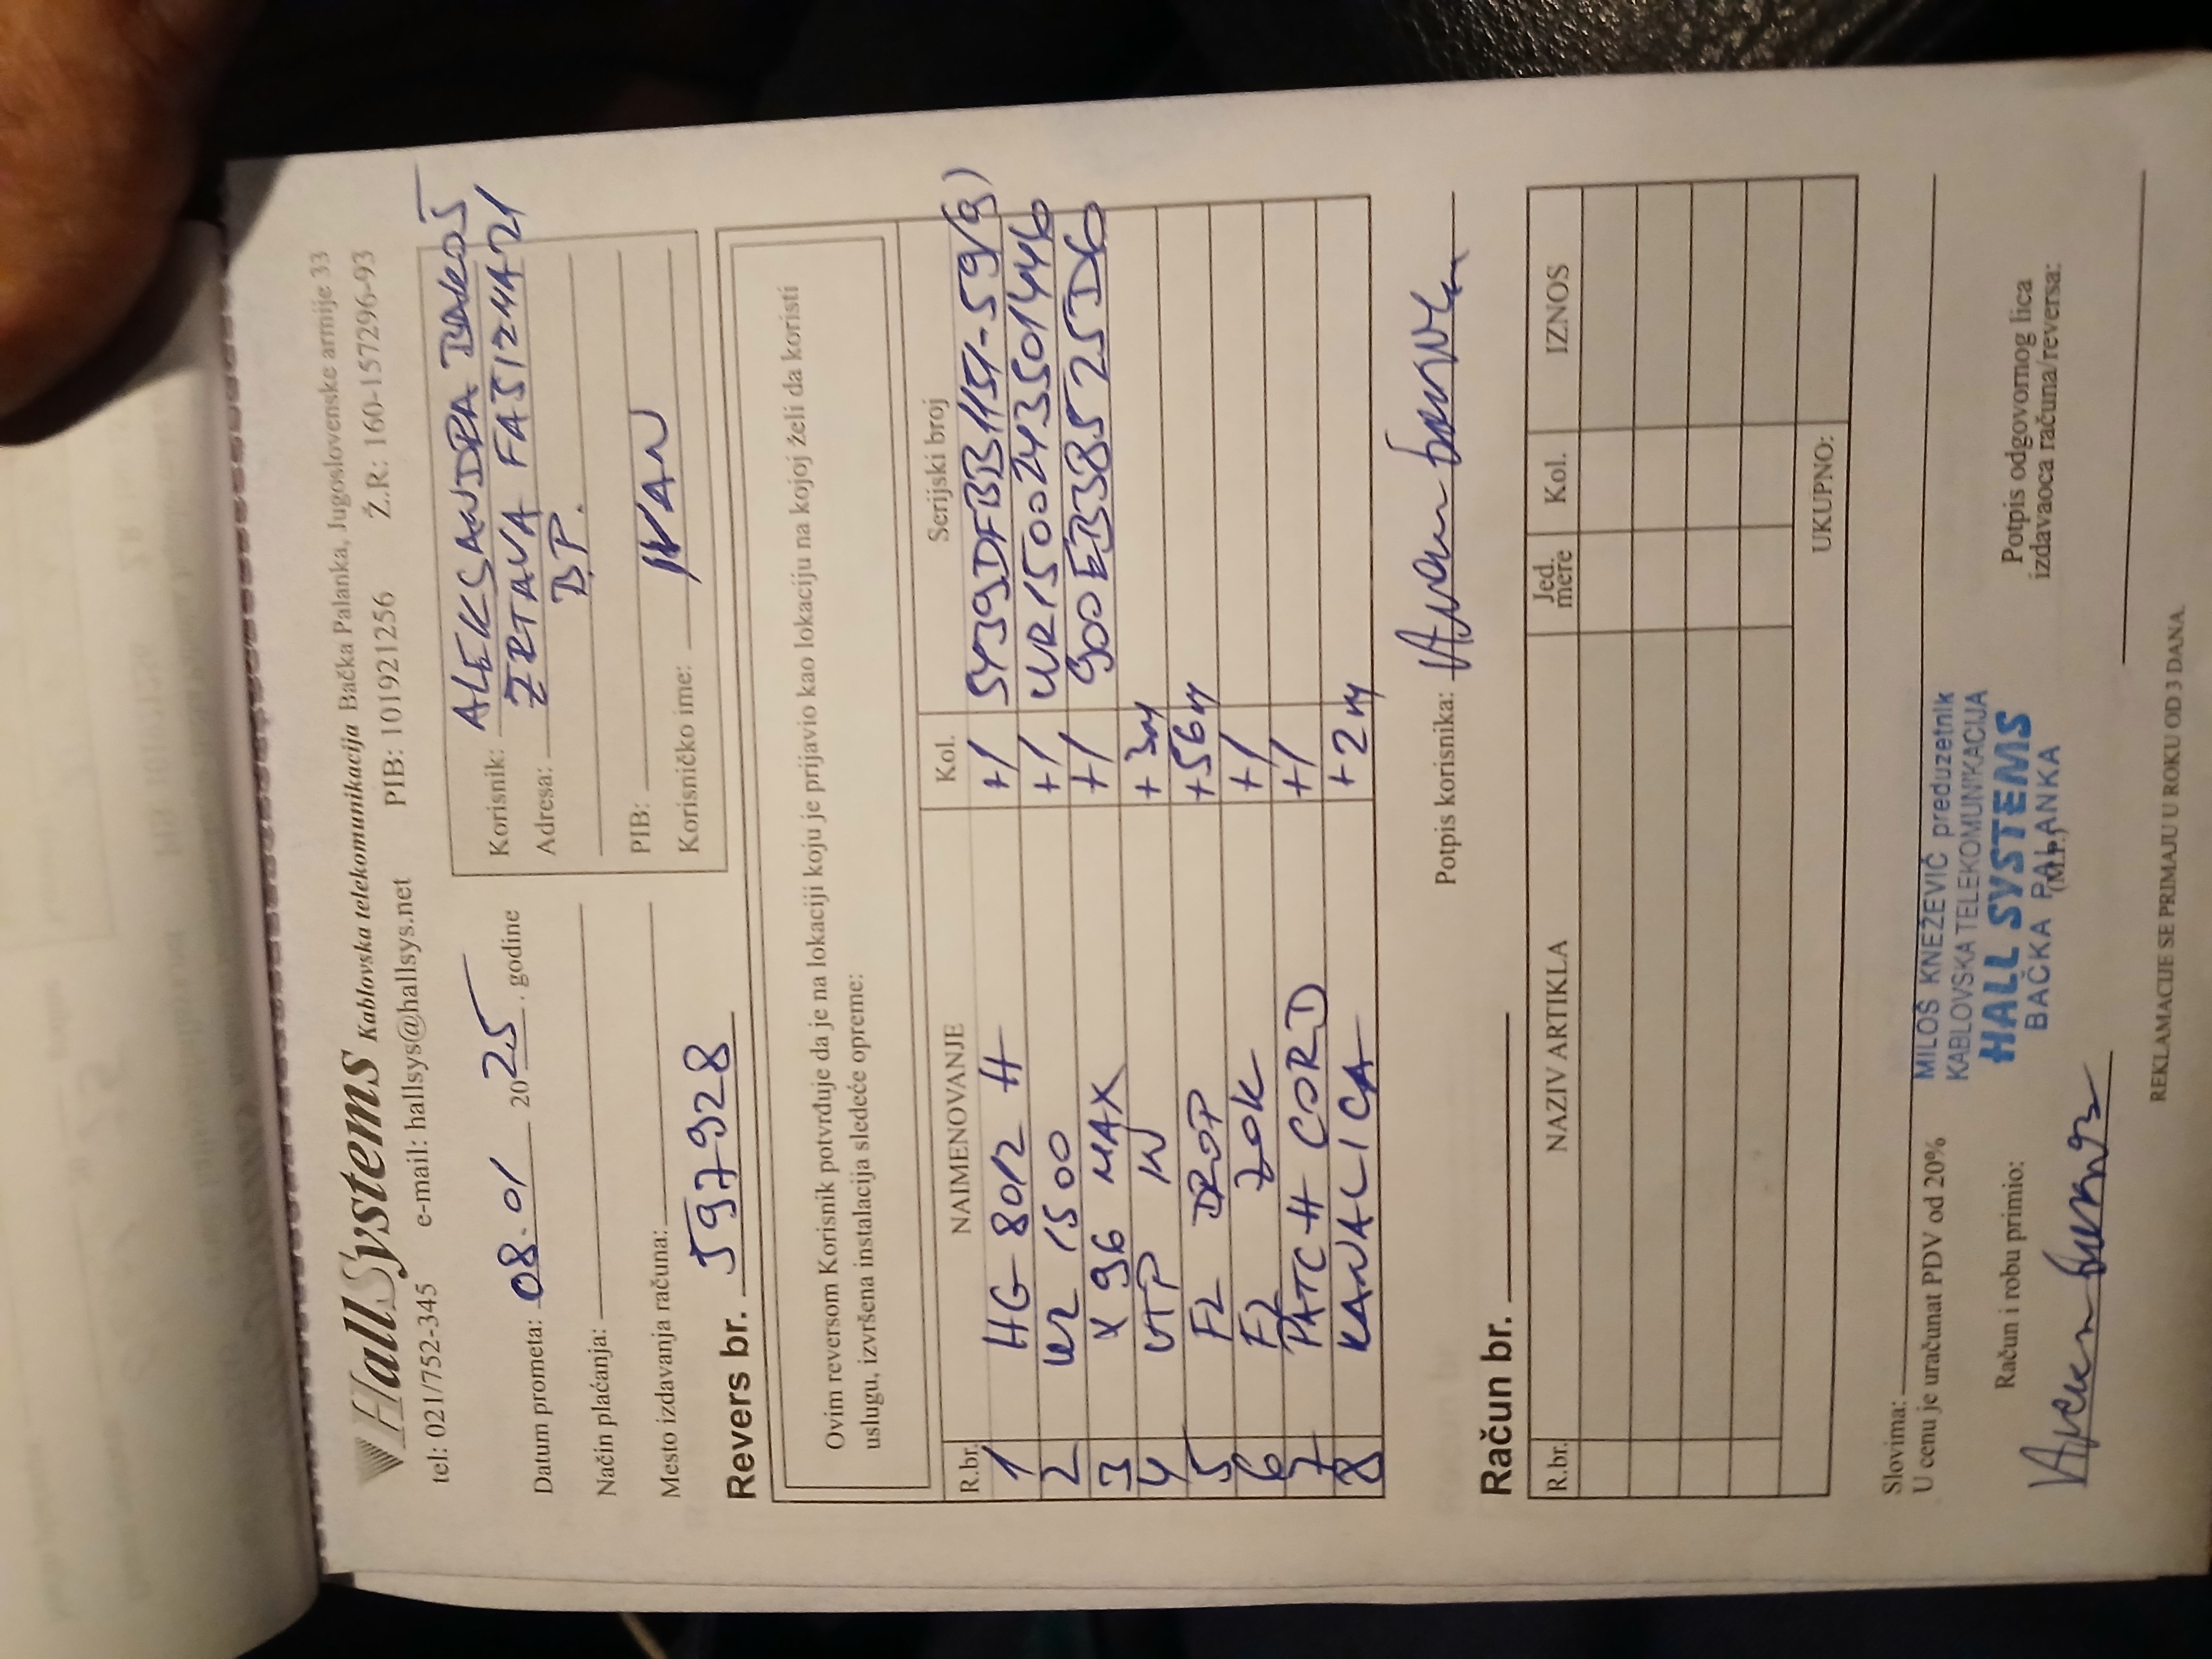 HallSystems Kablovska telekomunikacija Bačka Palanka, Jugoslovenske armije 33
tel: 021/752-345 e-mail: hallsys@hallsys.net PIB: 101921256 Ž.R: 160-157296-93
Datum prometa: 08.01 2025. godine
Način plaćanja:
Mesto izdavanja računa:
Korisnik: ALEKSANDRA BAKOŠ
Adresa: ŽRTAVA FAŠIZMA 21
B.P.
PIB:
Korisničko ime: IVAN
Revers br. 597928
Ovim reversom Korisnik potvrđuje da je na lokaciji koju je prijavio kao lokaciju na kojoj želi da koristi
uslugu, izvršena instalacija sledeće opreme:
R.br. NAIMENOVANJE Kol. Serijski broj
1 HG 8012 H +1
2 WR 1500 +1 WR1500243501446
3 X96 MAX +1 900EB38525D6
4 UTP W +3m
5 F2 DROP +56m
6 F2 ZOK +1
7 PATCH CORD +1
8 KANALICA +2m
Potpis korisnika:
Račun br.
R.br. NAZIV ARTIKLA Jed. mere Kol. IZNOS
UKUPNO:
Slovima:
U cenu je uračunat PDV od 20%
MILOŠ KNEŽEVIĆ preduzetnik
KABLOVSKA TELEKOMUNIKACIJA
HALL SYSTEMS
BAČKA PALANKA
(M.P.)
Račun i robu primio:
Potpis odgovornog lica
izdavaoca računa/reversa:
REKLAMACIJE SE PRIMAJU U ROKU OD 3 DANA.